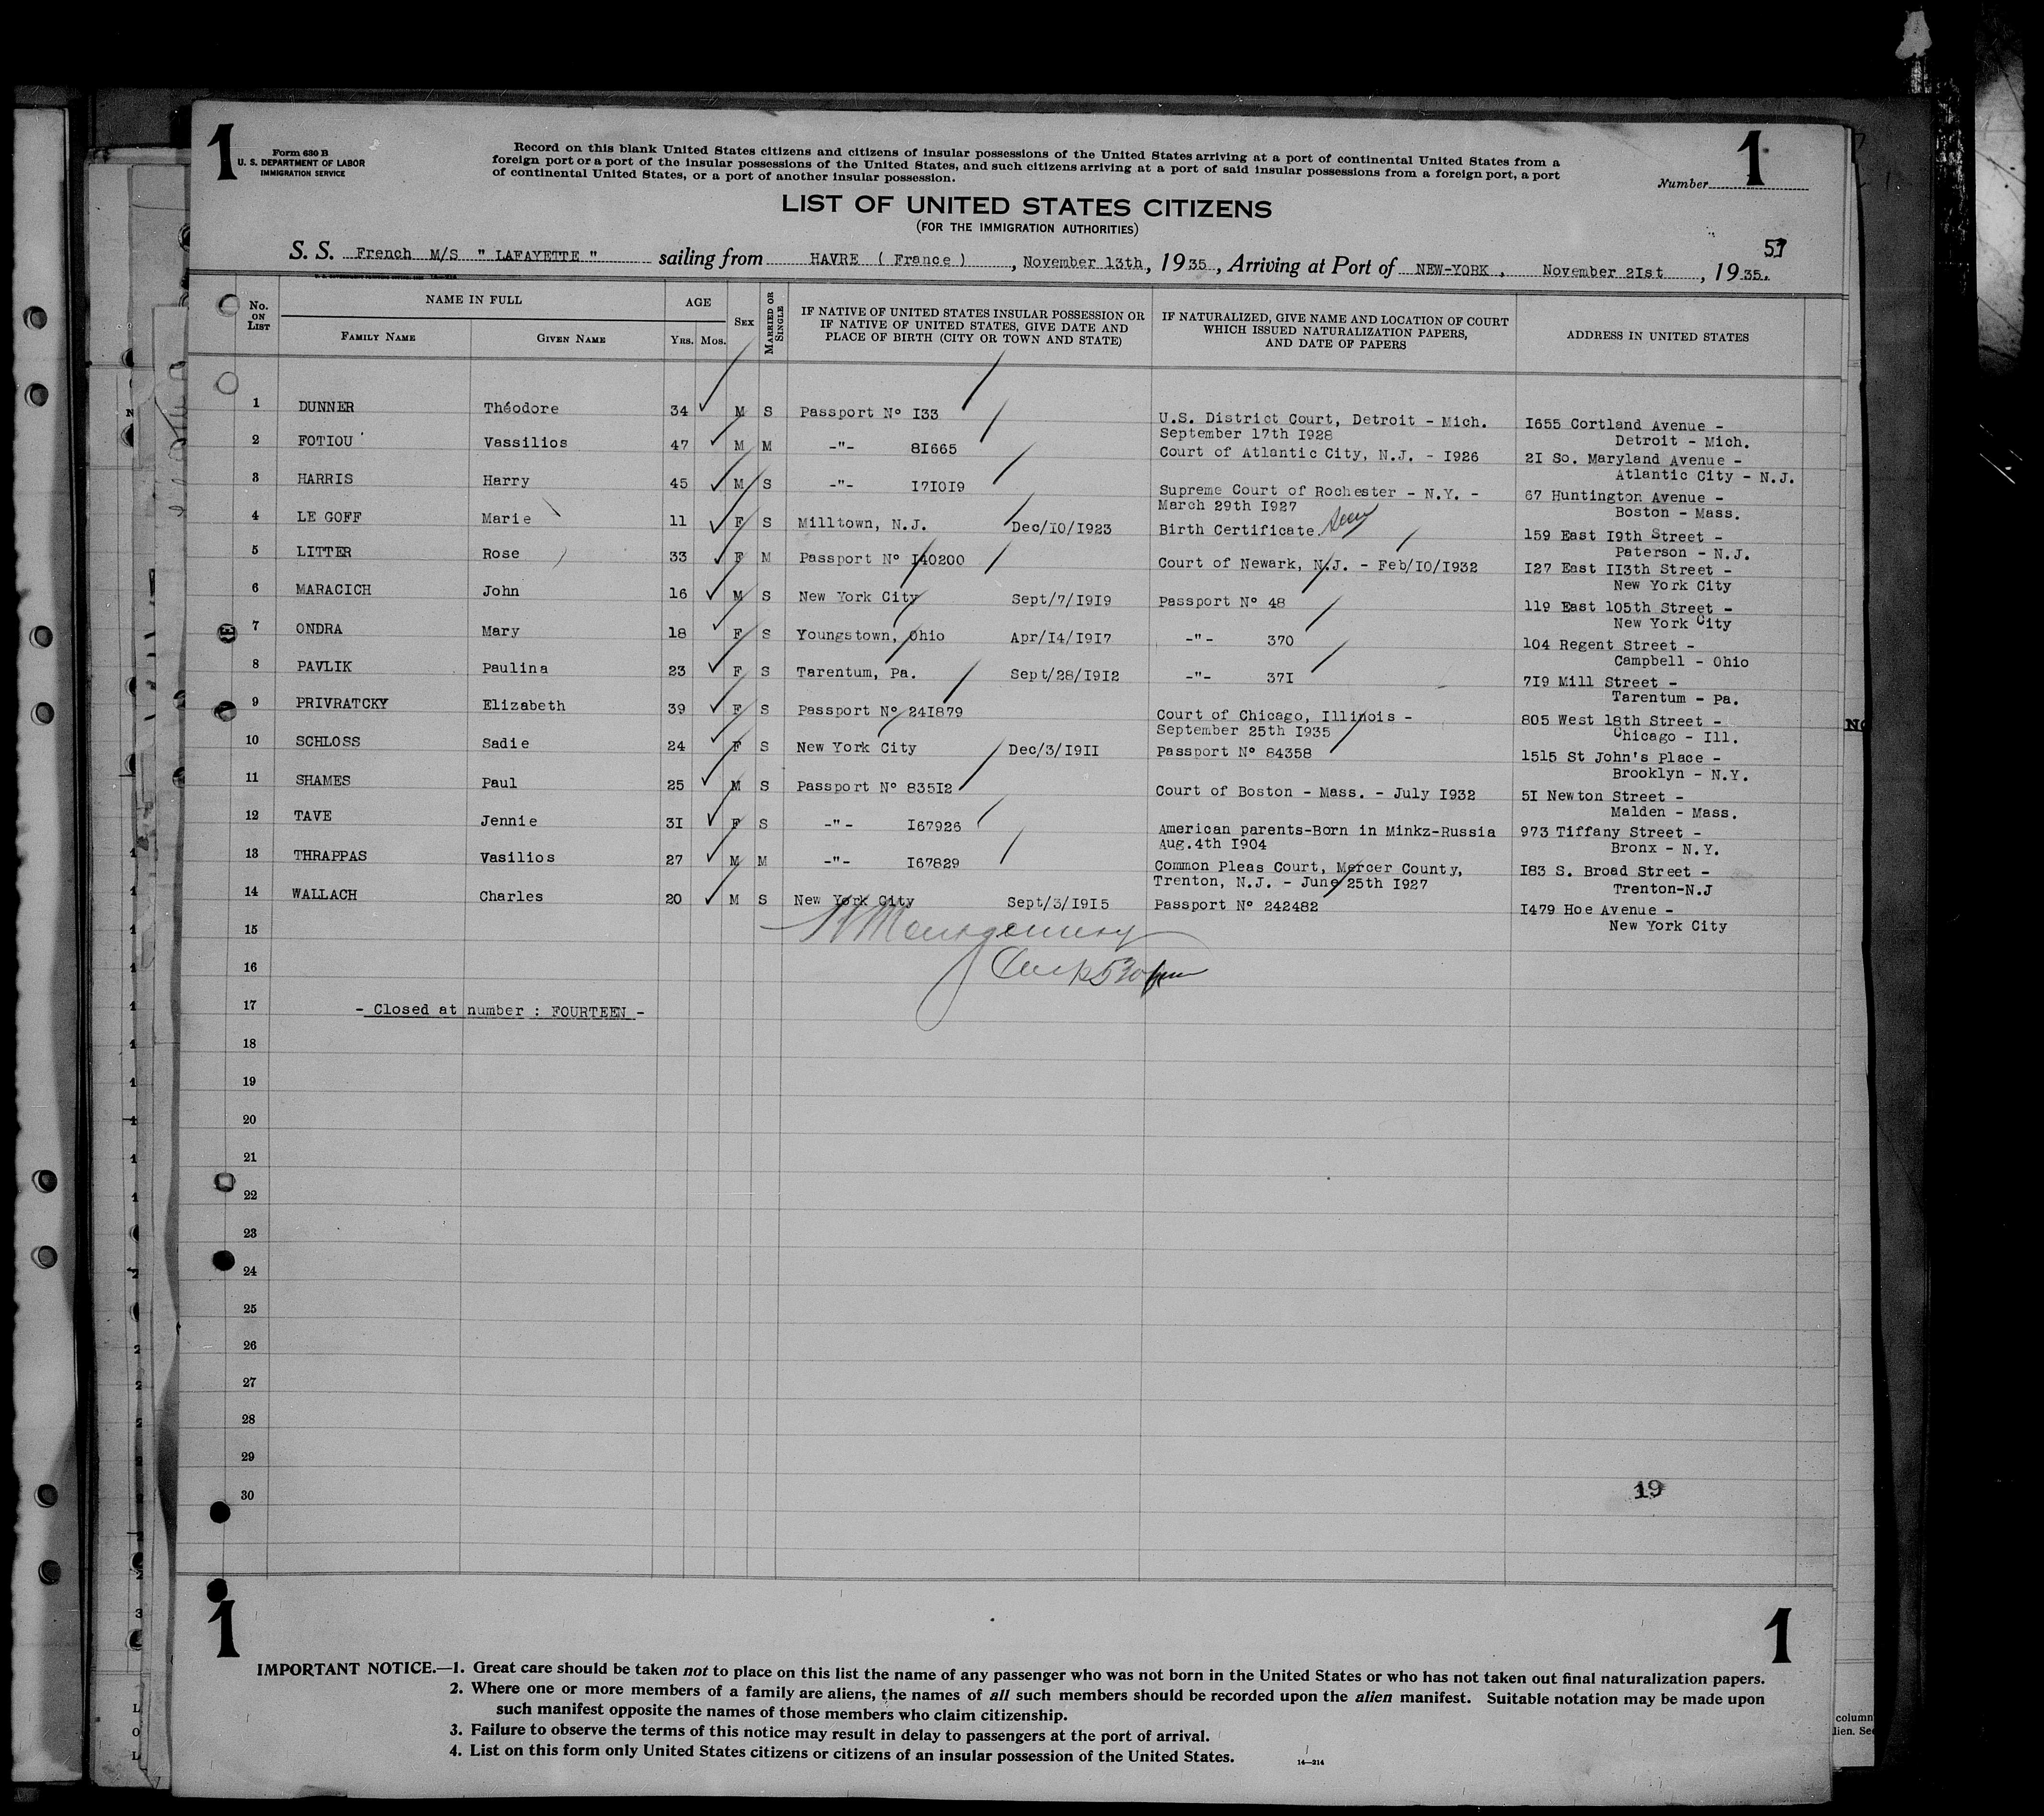 1
Form 630 B
U. S. DEPARTMENT OF LABOR
IMMIGRATION SERVICE
Record on this blank United States citizens and citizens of insular possessions of the United States arriving at a port of continental United States from a
foreign port or a port of the insular possessions of the United States, and such citizens arriving at a port of said insular possessions from a foreign port, a port
of continental United States, or a port of another insular possession.
Number 1
LIST OF UNITED STATES CITIZENS
(FOR THE IMMIGRATION AUTHORITIES)
S. S. French M/S " LAFAYETTE " sailing from HAVRE ( France ) , November 13th, 1935, Arriving at Port of NEW-YORK , November 2Ist , 1935.
No. ON LIST
NAME IN FULL
FAMILY NAME
GIVEN NAME
AGE
YRS. MOS.
SEX
MARRIED OR SINGLE
IF NATIVE OF UNITED STATES INSULAR POSSESSION OR
IF NATIVE OF UNITED STATES, GIVE DATE AND
PLACE OF BIRTH (CITY OR TOWN AND STATE)
IF NATURALIZED, GIVE NAME AND LOCATION OF COURT
WHICH ISSUED NATURALIZATION PAPERS,
AND DATE OF PAPERS
ADDRESS IN UNITED STATES
1 DUNNER Théodore 34 M S Passport N° I33 U.S. District Court, Detroit - Mich. I655 Cortland Avenue -
September 17th I928 Detroit - Mich.
2 FOTIOU Vassilios 47 M M -"- 8I665 Court of Atlantic City, N.J. - I926 2I So. Maryland Avenue -
Atlantic City - N.J.
3 HARRIS Harry 45 M S -"- I7I0I9 Supreme Court of Rochester - N.Y. - 67 Huntington Avenue -
March 29th I927 Boston - Mass.
4 LE GOFF Marie 11 F S Milltown, N.J. Dec/I0/I923 Birth Certificate. Seen 159 East I9th Street -
Paterson - N.J.
5 LITTER Rose 33 F M Passport N° I40200 Court of Newark, N.J. - Feb/I0/I932 I27 East II3th Street -
New York City
6 MARACICH John 16 M S New York City Sept/7/I9I9 Passport N° 48 119 East 105th Street -
New York City
7 ONDRA Mary 18 F S Youngstown, Ohio Apr/I4/I9I7 -"- 370 104 Regent Street -
Campbell - Ohio
8 PAVLIK Paulina 23 F S Tarentum, Pa. Sept/28/I9I2 -"- 37I 7I9 Mill Street -
Tarentum - Pa.
9 PRIVRATCKY Elizabeth 39 F S Passport N° 24I879 Court of Chicago, Illinois - 805 West 18th Street -
September 25th I935 Chicago - Ill.
10 SCHLOSS Sadie 24 F S New York City Dec/3/I9II Passport N° 84358 1515 St John's Place -
Brooklyn - N.Y.
11 SHAMES Paul 25 M S Passport N° 835I2 Court of Boston - Mass. - July I932 5I Newton Street -
Malden - Mass.
12 TAVE Jennie 3I F S -"- I67926 American parents-Born in Minkz-Russia 973 Tiffany Street -
Aug.4th I904 Bronx - N.Y.
13 THRAPPAS Vasilios 27 M M -"- I67829 Common Pleas Court, Mercer County, I83 S. Broad Street -
Trenton, N.J. - June 25th I927 Trenton-N.J
14 WALLACH Charles 20 M S New York City Sept/3/I9I5 Passport N° 242482 I479 Hoe Avenue -
New York City
15 Montgomery
16
17 - Closed at number : FOURTEEN -
18
19
20
21
22
23
24
25
26
27
28
29
30
19
1
1
IMPORTANT NOTICE.—1. Great care should be taken not to place on this list the name of any passenger who was not born in the United States or who has not taken out final naturalization papers.
2. Where one or more members of a family are aliens, the names of all such members should be recorded upon the alien manifest. Suitable notation may be made upon
such manifest opposite the names of those members who claim citizenship.
3. Failure to observe the terms of this notice may result in delay to passengers at the port of arrival.
4. List on this form only United States citizens or citizens of an insular possession of the United States.
14—214